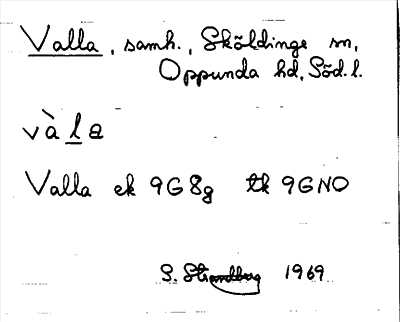 Valla, samh., Sköldinge sn,
Oppunda hd, Söd. l.
vàla
Valla ek 9G8g tk 9GNO
S. Strandberg 1969